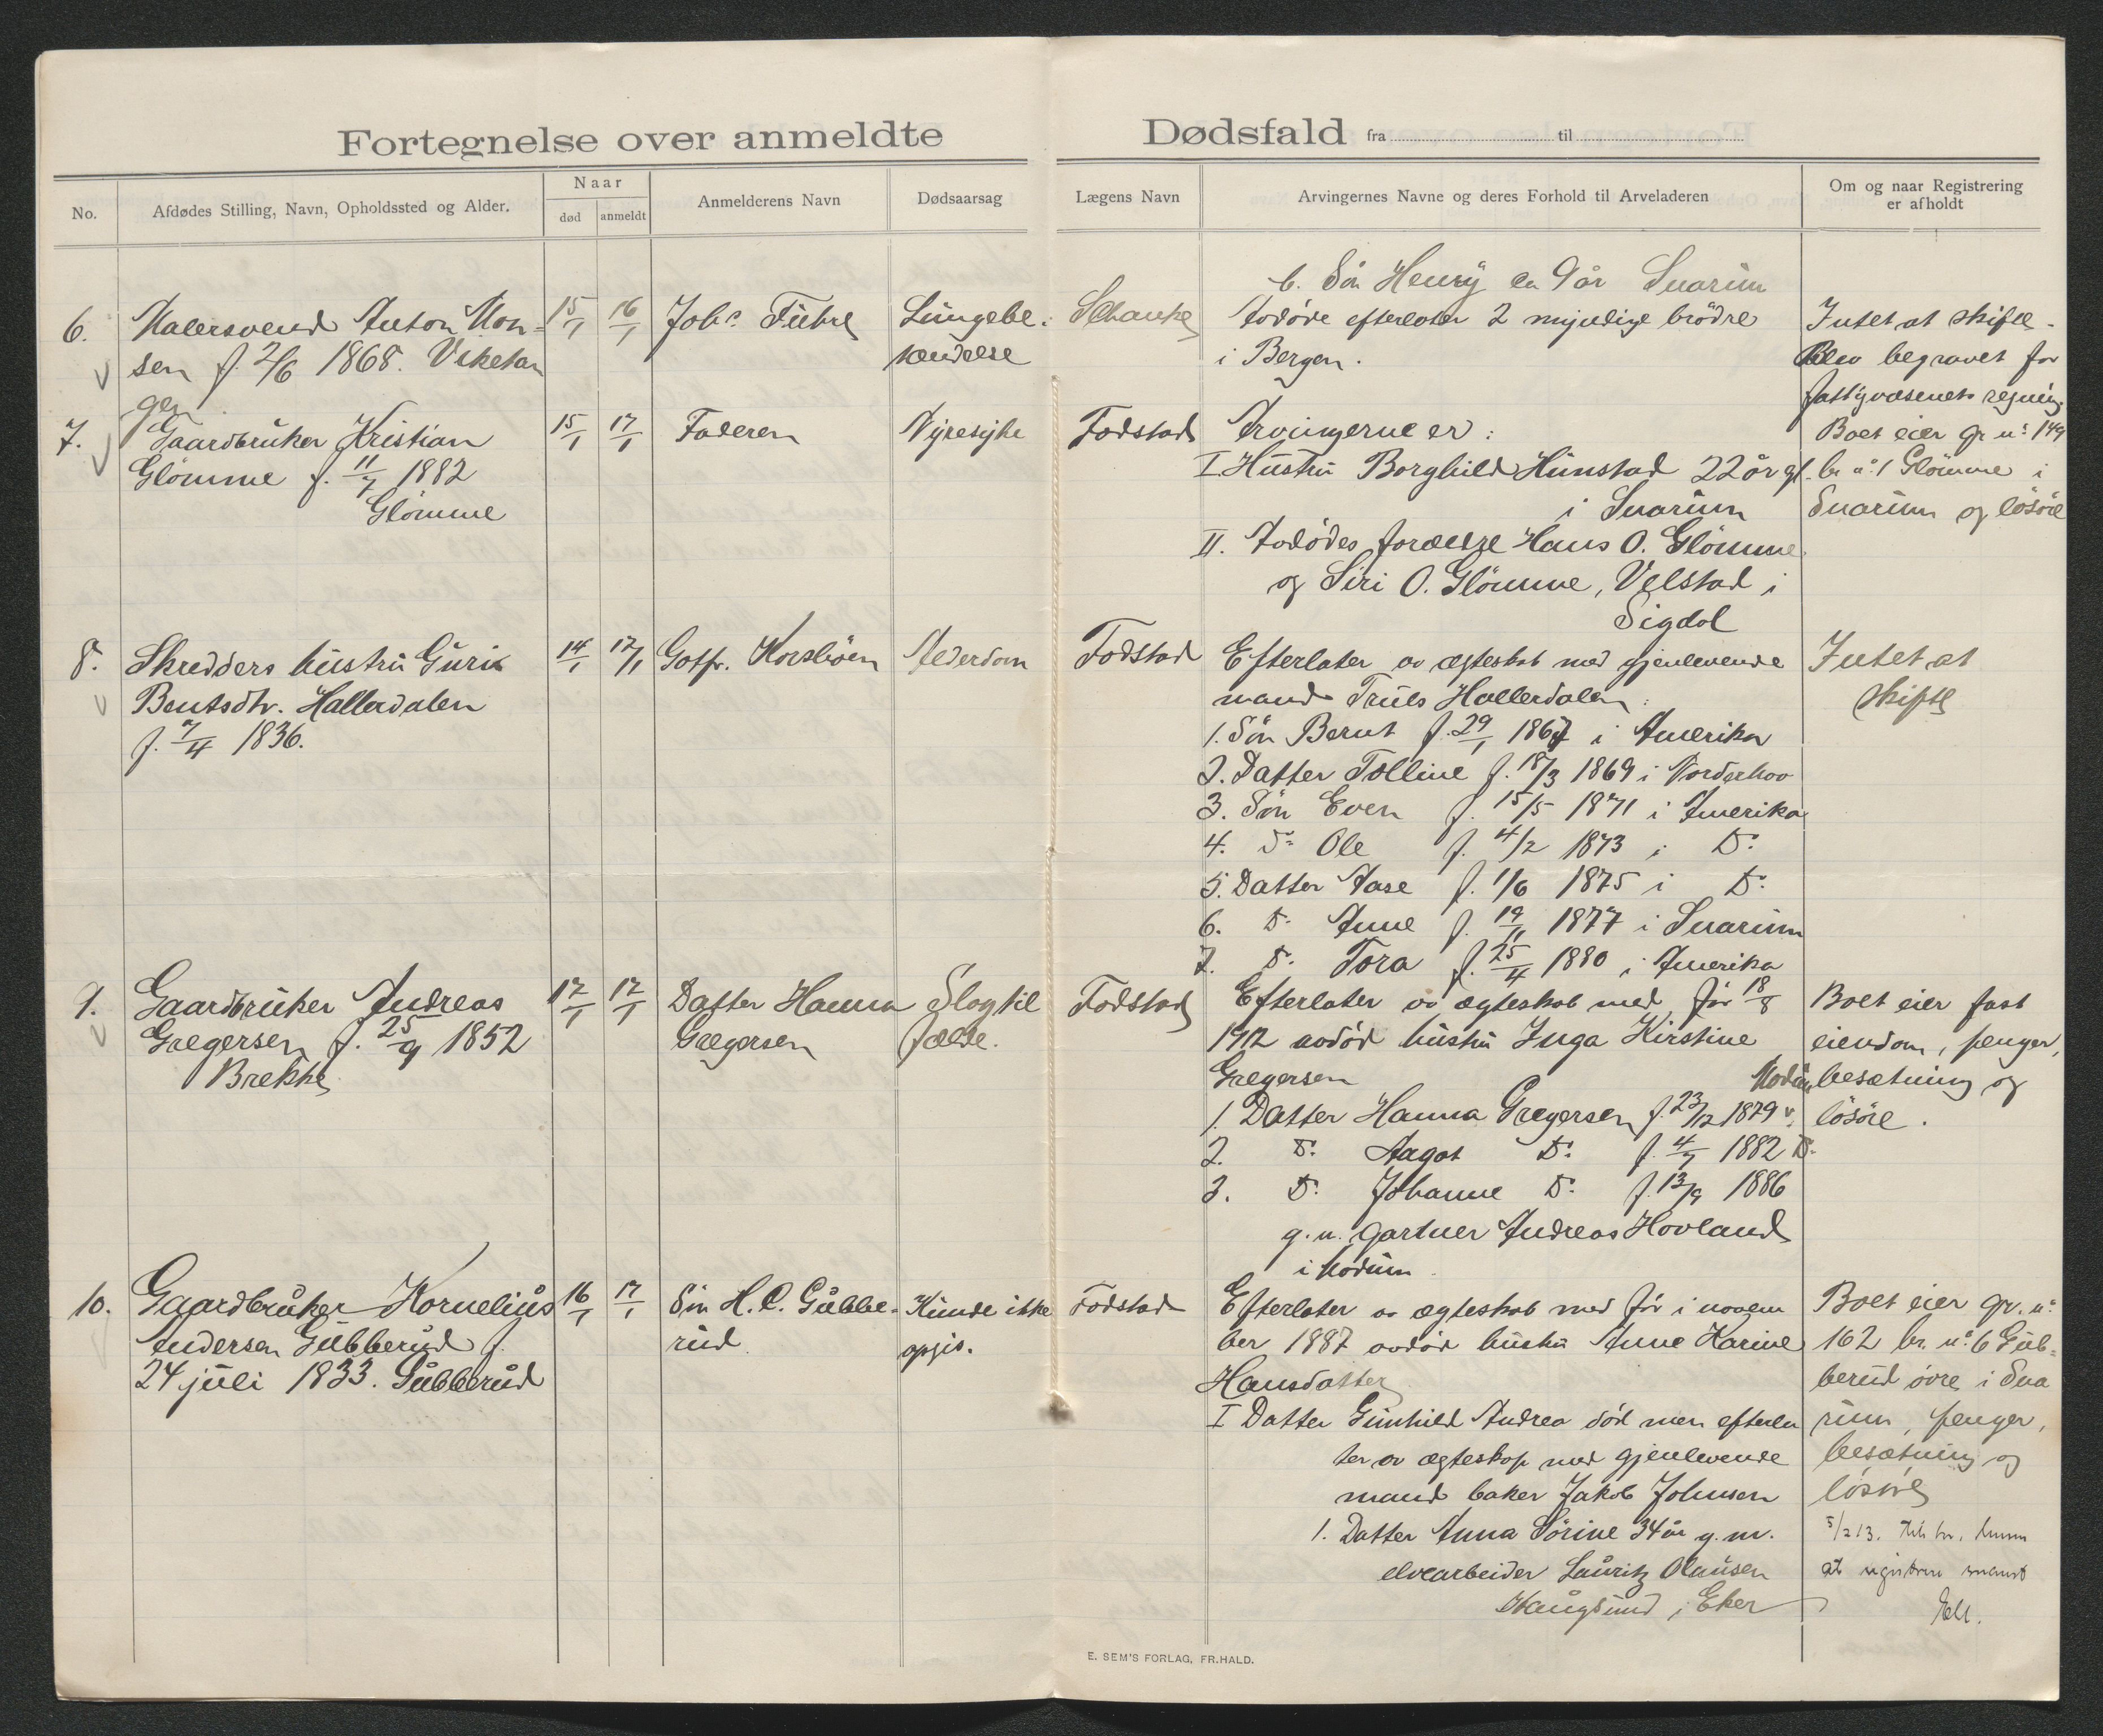 Fortegnelse over anmeldte Dødsfald fra til
No.
Afdødes Stilling, Navn, Opholdssted og Alder.
Naar
død
anmeldt
Anmelderens Navn
Dødsaarsag
Lægens Navn
Arvingernes Navne og deres Forhold til Arveladeren
Om og naar Registrering
er afholdt
6. Søn Henry ca 9 år Snarum
6.
Malersvend Anton Mon-
sen f. 2/6 1868. Viketan
gen
15/1
16/1
Johs. Fuhre
Lungebe-
tændelse
Schanke
Avdøde efterlater 2 myndige brødre
i Bergen.
Intet at skifte.
Blev begravet for
fattigvæsenets regning.
7.
Gaardbruker Kristian
Glømme f. 11/7 1882
Glømme
15/1
17/1
Faderen
Nyresyke
Fodstad
Arvingerne er:
I. Hustru Borghild Hunstad 22 år gl.
i Snarum
II. Avdødes forældre Hans O. Glømme
og Siri O. Glømme, Velstad i
Sigdal
Boet eier gr. no 149
br. no 1 Glømme i
Snarum og løsøre
8.
Skredders hustru Guri
Bentsdtr. Hallerdalen
f. 7/4 1836.
14/1
17/1
Gotfr. Korsbøen
Alderdom
Fodstad
Efterlater av ægteskab med gjenlevende
mand Truls Hallerdalen:
1. Søn Bernt f. 29/1 1867 i Amerika
2. Datter Tolline f. 18/3 1869 i Norderhov
3. Søn Even f. 15/5 1871 i Amerika
4. Do Ole f. 4/2 1873 i Do
5. Datter Aase f. 1/6 1875 i Do
6. Do Anne f. 19/11 1877 i Snarum
7. Do Tora f. 25/4 1880 i Amerika
Intet at
skifte
9.
Gaardbruker Andreas
Gregersen f. 25/9 1852
Brekke
17/1
17/1
Datter Hanna
Gregersen
Slagtil
fælde.
Fodstad
Efterlater av ægteskab med før 18/8
1912 avdød hustru Inga Kirstine
Gregersen
Modum
1. Datter Hanna Gregersen f. 23/12 1879
2. Do Aagot Do f. 4/7 1882 Do
3. Do Johanne Do f. 13/9 1886
g.m. gartner Andreas Hovland
i Modum
Boet eier fast
eiendom, penger,
besætning og
løsøre.
10.
Gaardbruker Kornelius
Andersen Gubberud f.
24 juli 1833. Gubberud
16/1
17/1
Søn H. C. Gubbe-
rud
Kunde ikke
opgis.
Fodstad
Efterlater av ægteskab med før i novem
ber 1887 avdød hustru Anne Karine
Hansdatter
I Datter Gunhild Andrea død men efterla
ter av ægteskap med gjenlevende
mand baker Jakob Johnsen
1. Datter Anna Sørine 34 år g. m.
elvearbeider Lauritz Olausen
Haugsund i Eker
Boet eier gr. no
162 br. no 6 Gub-
berud øvre i Sna
rum, penger,
besætning og
løsøre
5/2 13.
at registrere snarest
E. SEM'S FORLAG, FR.HALD.